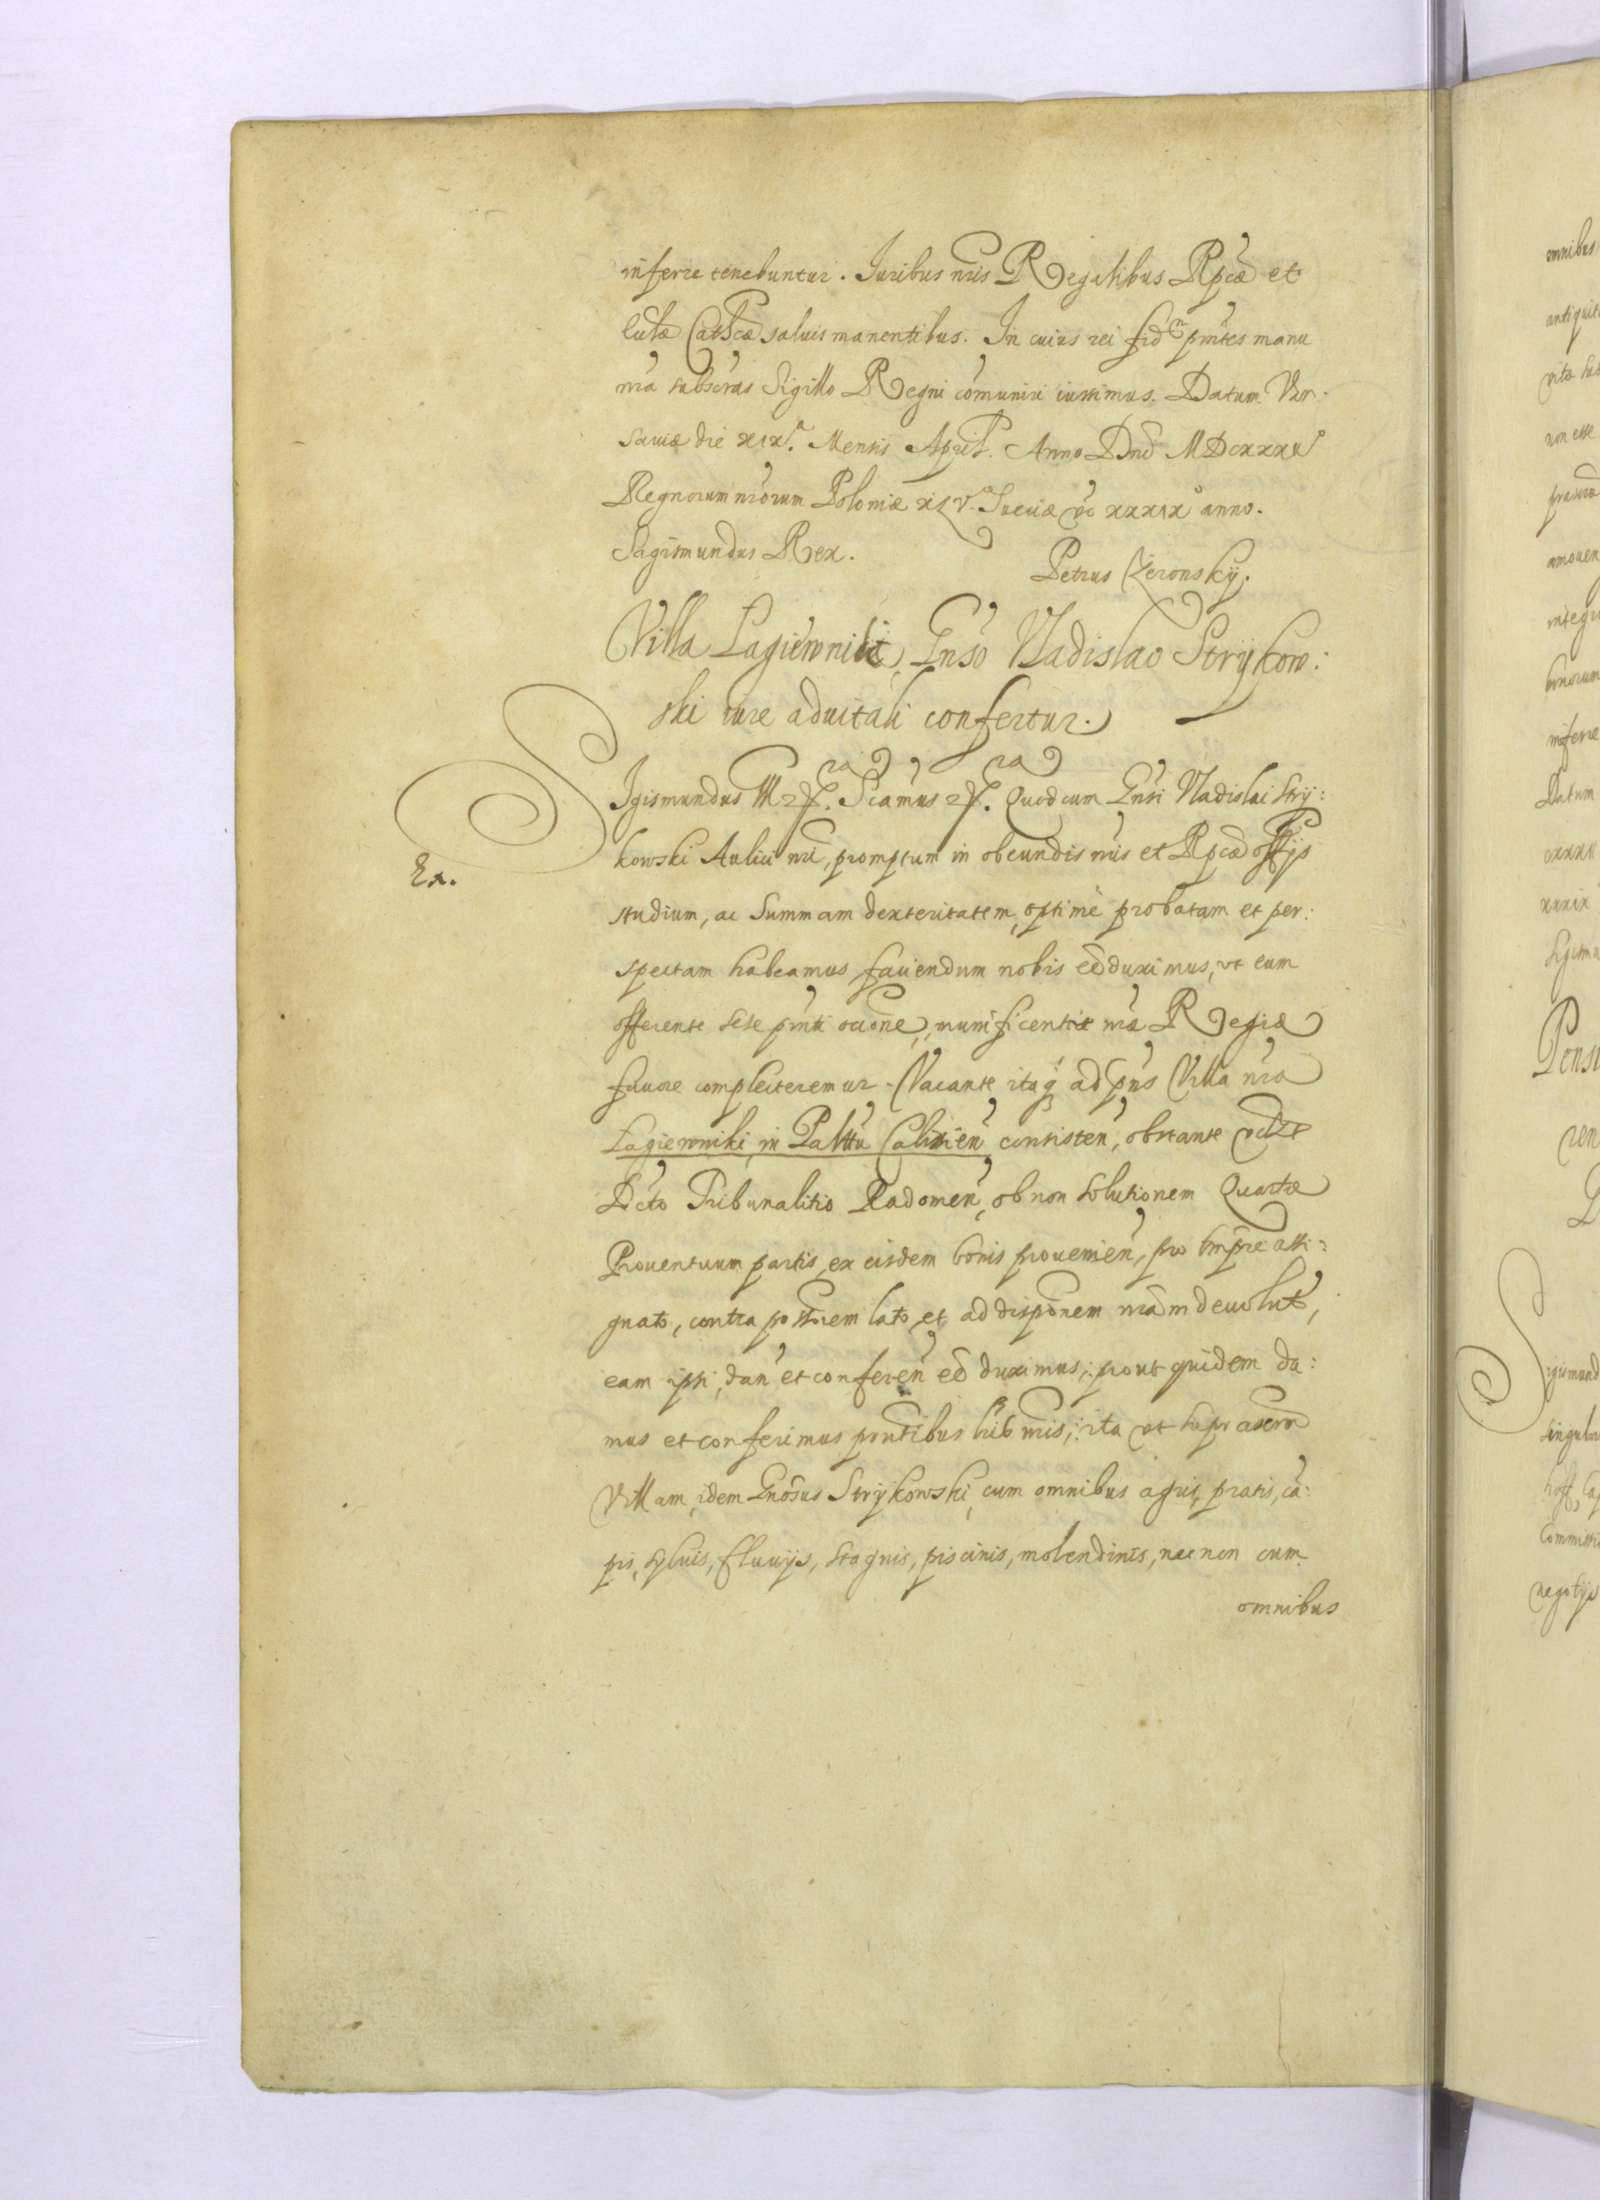 inferre tenebuntur. Iuribus nris Regalibus Rpcæ et
Cathcæ saluis manentibus. In cuius rei fid pntes manu
nra subscras Sigillo Regni comuniri iussimus. Datum Var-
sauiæ die XIX. Mensis April. Anno Dni
Regnorum nrorum Poloniæ Sueciæ vo XXXIX anno.
Sigismundus Rex.
Petrus Żeronskij.
Villa Lagiewniki, Gnso Vladislao Strijkow:
ski iure aduitali confertur.
Ex.
SIgismundus III etc. Scamus etc. Quod cum Gnsi Vladislai Strij:
kowski Aulici nri, promptum in obeundis nris et Rpcæ offijs
studium, ac Summam dexteritatem, optime probatam et per:
spectam habeamus, faciendum nobis eë duximus, vt eum
offerente sese pnti occone, munificentiæ nræ Regiæ
fauore complecteremur. Vacante itaq ad pns Villa nra
Lagiewniki, in Palttu Calissien consisten, obstante
Dcto Tribunalitio Radomen, ob non solutionem Quartæ
Prouentuum partis, ex eisdem bonis prouenien, pro tmpre assi:
gnato, contra possorem lato, et ad disponem nram deuolut,
eam ipsi, dan et conferen eë duximus; prout quidem da:
mus et conferimus pntibus lris nris; ita vt suprascram
Villam, idem Gnosus Strijkowski, cum omnibus agris, pratis, ca:
pis, syluis, fluuijs, stagnis, piscinis, molendinis, nec non cum
omnibus
omnibus
antiquit
non esse
amouen
integr
bonorum
inferre
Datum
XXXIX
Sigism
Pensi
Sigismund
singul
Committi
negotijs